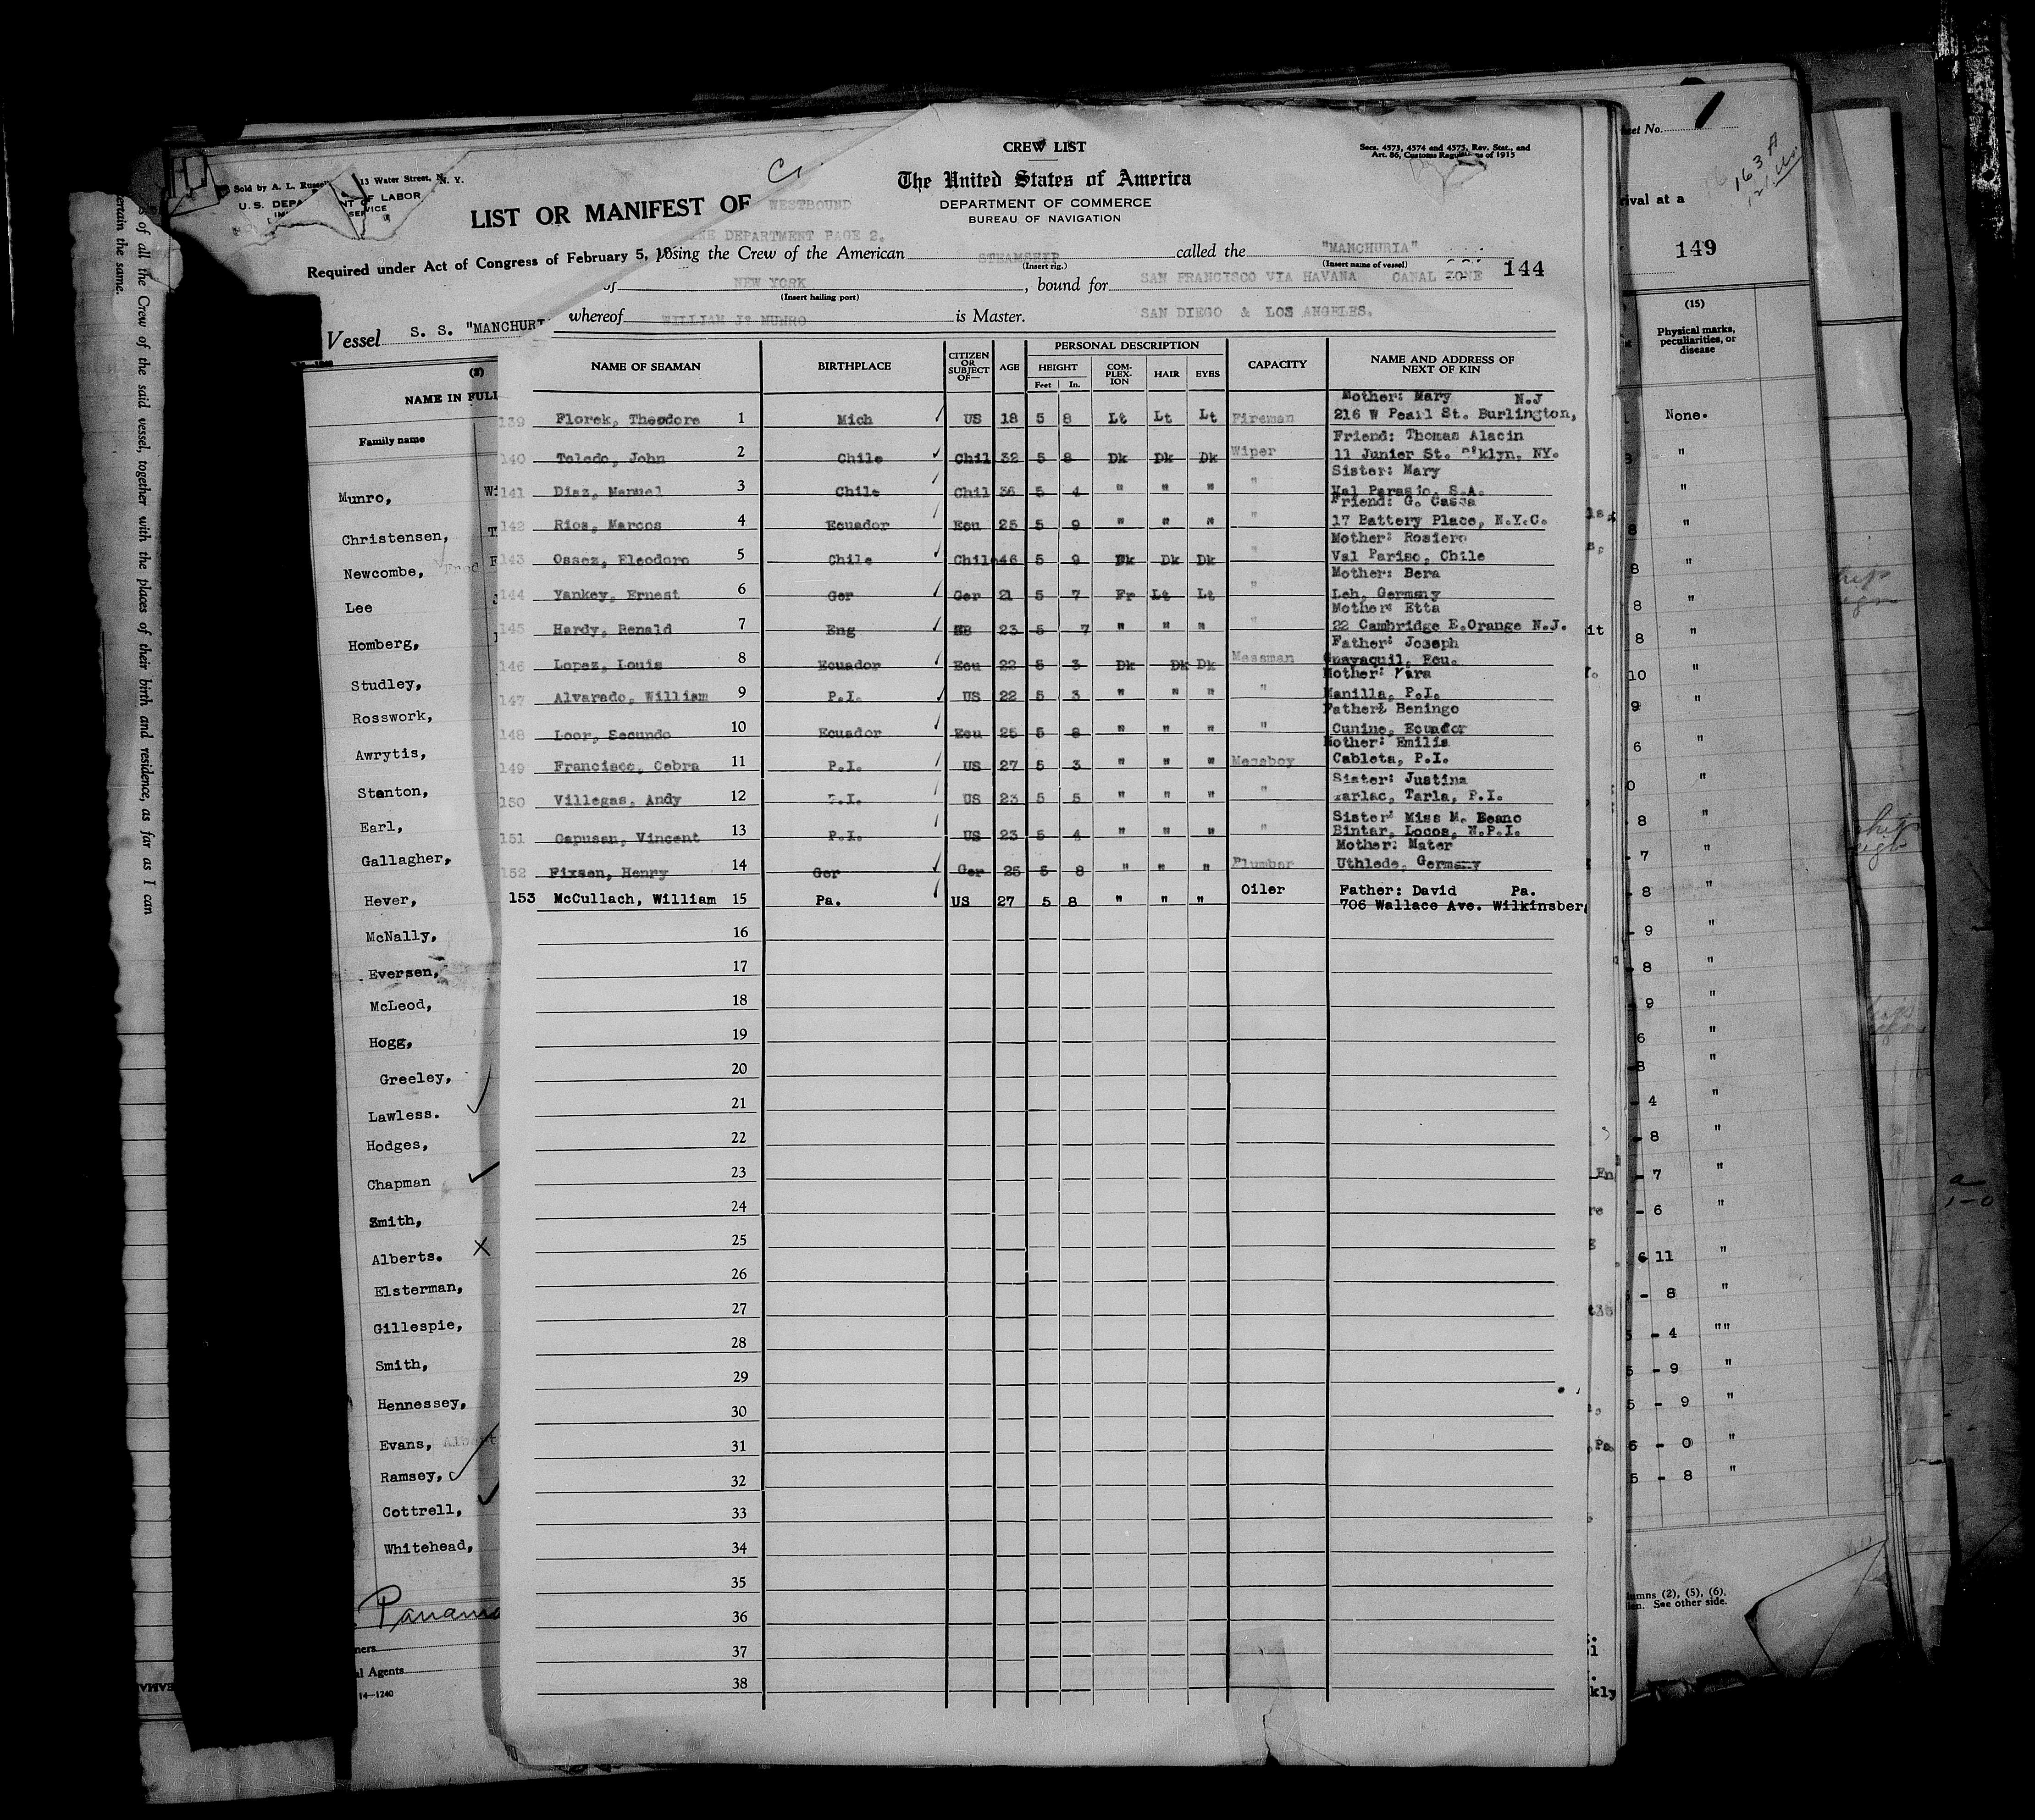 CREW LIST
Secs. 4573, 4574 and 4575, Rev. Stat., and
Art. 86, Customs Regulations of 1915
The United States of America
DEPARTMENT OF COMMERCE
BUREAU OF NAVIGATION
WESTBOUND
DEPARTMENT PAGE 2.
osing the Crew of the American STEAMSHIP called the "MANCHURIA"
(Insert rig.) (Insert name of vessel)
144
of NEW YORK, bound for SAN FRANCISCO VIA HAVANA CANAL ZONE
(Insert hailing port)
whereof WILLIAM J. MUNRO is Master. SAN DIEGO & LOS ANGELES.
NAME OF SEAMAN BIRTHPLACE CITIZEN OR SUBJECT OF— AGE PERSONAL DESCRIPTION CAPACITY NAME AND ADDRESS OF NEXT OF KIN
HEIGHT COM-PLEX-ION HAIR EYES
Feet In.
Mother: Mary N.J
139 Florek, Theodore 1 Mich US 18 5 8 Lt Lt Lt Fireman 216 W Pearl St. Burlington,
Friend: Thomas Alacin
140 Toledo, John 2 Chile Chil 32 5 8 Dk Dk Dk Wiper 11 Junier St. B'klyn, NY.
Sister: Mary
141 Diaz, Manuel 3 Chile Chil 36 5 4 " " " " Val Parasio, S.A.
Friend: G. Cassa
142 Rios, Marcos 4 Ecuador Ecu 25 5 9 " " " " 17 Battery Place, N.Y.C.
Mother: Rosiero
143 Ossez, Eleodoro 5 Chile Chile 46 5 9 Dk Dk Dk " Val Pariso, Chile
Mother: Bera
144 Yankey, Ernest 6 Ger Ger 21 5 7 Fr Lt Lt " Leh, Germany
Mother: Etta
145 Hardy, Renald 7 Eng 23 5 7 " " " " 22 Cambridge E.Orange N.J.
Father: Joseph
146 Lopez, Louis 8 Ecuador Ecu 22 5 3 Dk Dk Dk Messman Guayaquil, Ecu.
Mother: Yara
147 Alvarado, William 9 P.I. US 22 5 3 " " " " Manilla, P.I.
Father: Beningo
148 Loor, Secundo 10 Ecuador Ecu 25 5 8 " " " " Cunine, Ecuador
Mother: Emilia
149 Francisco, Cobra 11 P.I. US 27 5 3 " " " Messboy Cableta, P.I.
Sister: Justina
150 Villegas, Andy 12 P.I. US 23 5 5 " " " " Tarlac, Tarla, P.I.
Sister: Miss M. Esano
151 Capusan, Vincent 13 P.I. US 23 5 4 " " " " Bintar, Locos, N.P.I.
Mother: Mater
152 Fixsen, Henry 14 Ger Ger 25 5 8 " " " Plumber Uthlede, Germany
153 McCullach, William 15 Pa. US 27 5 8 " " " Oiler Father: David Pa.
706 Wallace Ave. Wilkinsberg
16
17
18
19
20
21
22
23
24
25
26
27
28
29
30
31
32
33
34
35
36
37
38
Sold by A. L. Russell 13 Water Street, N. Y.
U.S. DEPARTMENT OF LABOR
SERVICE
LIST OR MANIFEST OF
Required under Act of Congress of February 5, 19
Vessel S. S. "MANCHURI
(2)
NAME IN FULL
Family name
Munro,
Christensen,
Newcombe,
Lee
Homberg,
Studley,
Rosswork,
Awrytis,
Stanton,
Earl,
Gallagher,
Hever,
McNally,
Eversen,
McLeod,
Hogg,
Greeley,
Lawless.
Hodges,
Chapman
Smith,
Alberts.
Elsterman,
Gillespie,
Smith,
Hennessey,
Evans,
Ramsey,
Cottrell,
Whitehead,
Panama
ners
al Agents
14—1240
of all the Crew of the said vessel, together with the places of their birth and residence, as far as I can
certain the same.
eet No. 1
163 A
rival at a
149
(15)
Physical marks, peculiarities, or disease
None.
8
8
8
8
10
9
6
0
8
- 7
- 8
- 9
- 8
- 9
6
8
- 4
- 8
- 7
- 6
6 11
- 8
- 4
5 - 9
5 - 9
6 - 0
5 - 8
lumns (2), (5), (6).
en. See other side.